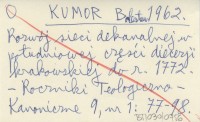 KUMOR Bolesław 1962.
Rozwój sieci dekanalnej w
południowej części diecezji
krakowskiej do r. 1772.
– Roczniki Teologiczno
Kanoniczne 9, nr 1: 77-98.